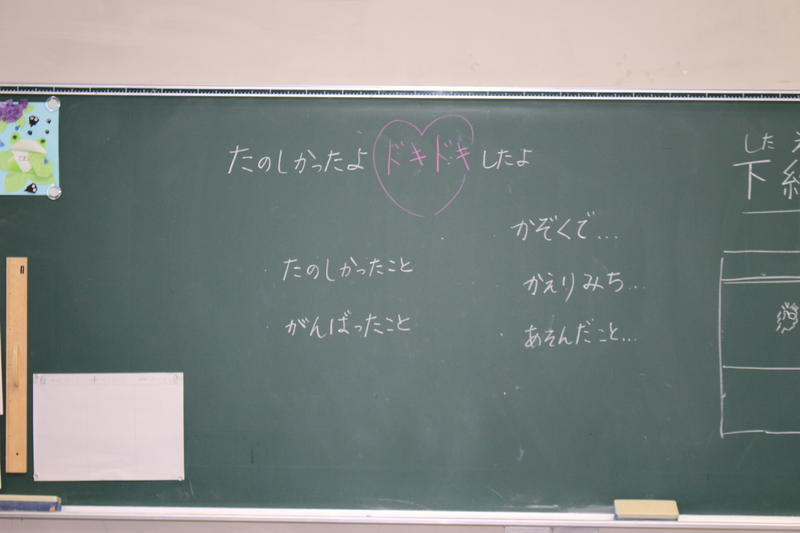 たのしかったよ ドキドキ したよ
たのしかったこと
がんばったこと
かぞくで...
かえりみち...
あそんだこと...
した
下